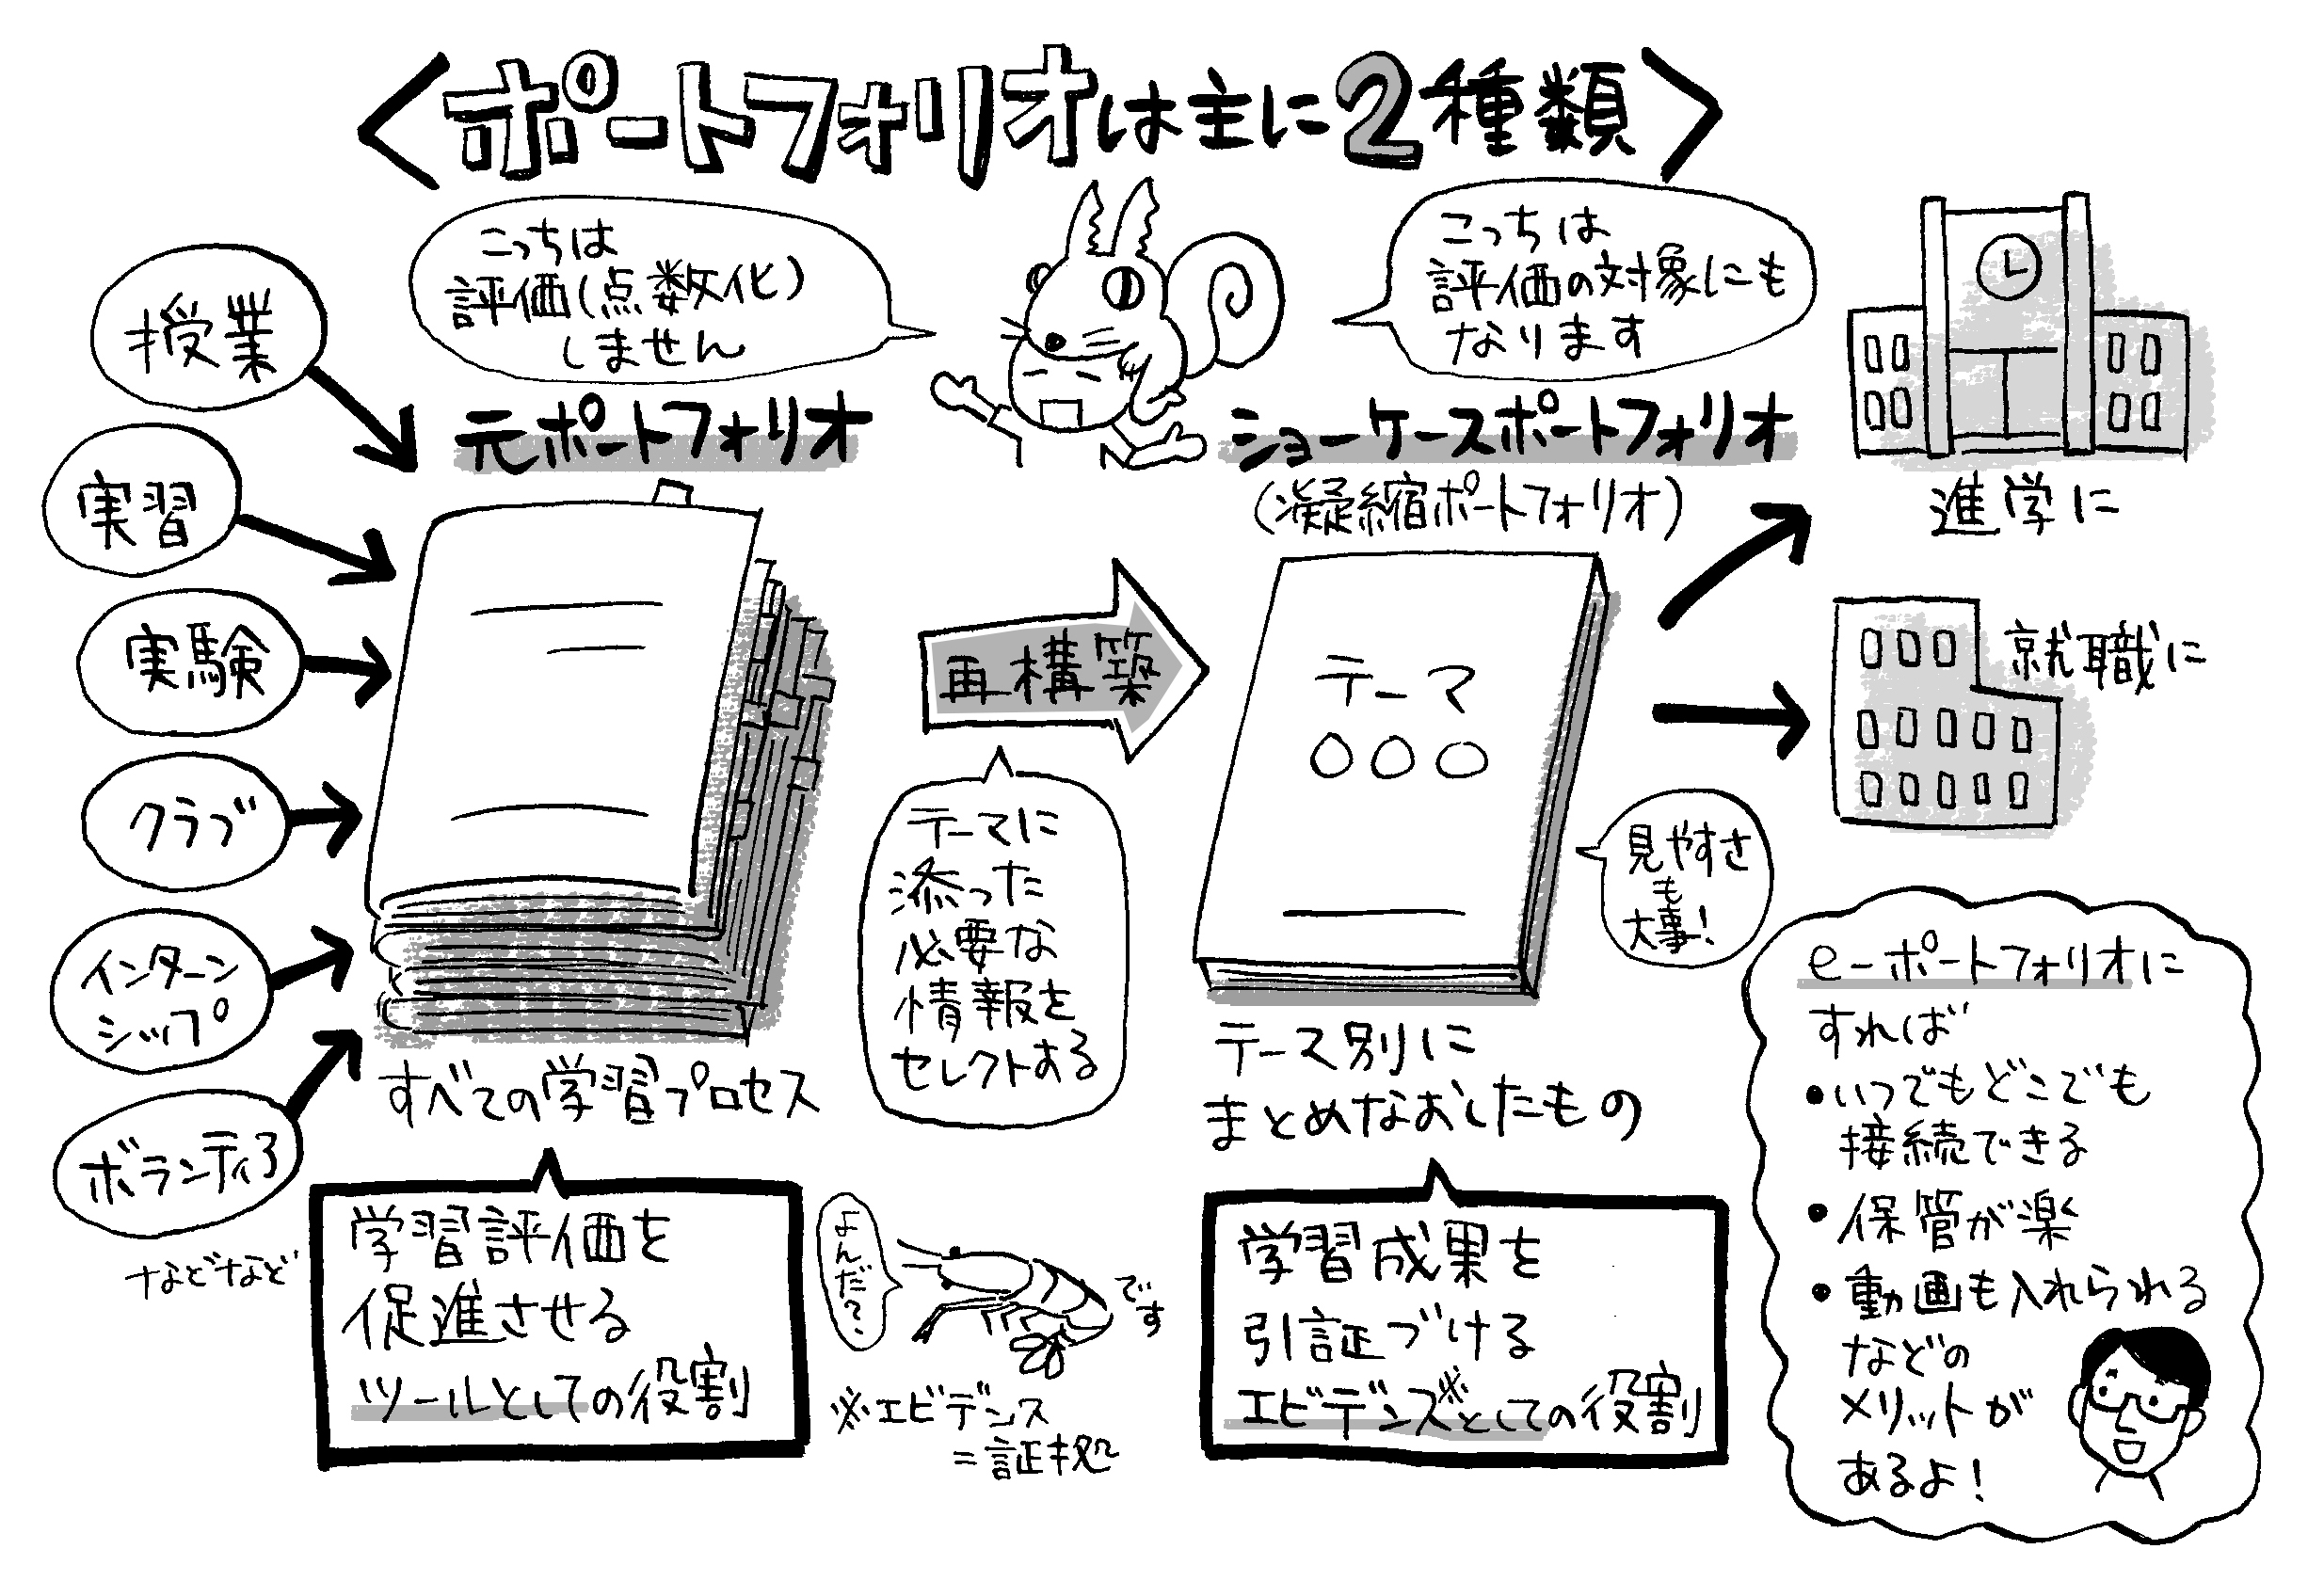 ＜ポートフォリオは主に2種類＞
こっちは
評価(点数化)
しません
こっちは
評価の対象にも
なります
授業
実習
実験
クラブ
インターン
シップ
ボランティア
などなど
元ポートフォリオ
すべての学習プロセス
学習評価を
促進させる
ツールとしての役割
再構築
テーマに
添った
必要な
情報を
セレクトする
ショーケースポートフォリオ
(凝縮ポートフォリオ)
テーマ
○○○
見やすさ
も
大事!
テーマ別に
まとめなおしたもの
学習成果を
引証づける
エビデンス※としての役割
よんだ?
です
※エビデンス
=証拠
進学に
就職に
e-ポートフォリオに
すれば
•いつでもどこでも
接続できる
•保管が楽
•動画も入れられる
などの
メリットが
あるよ!